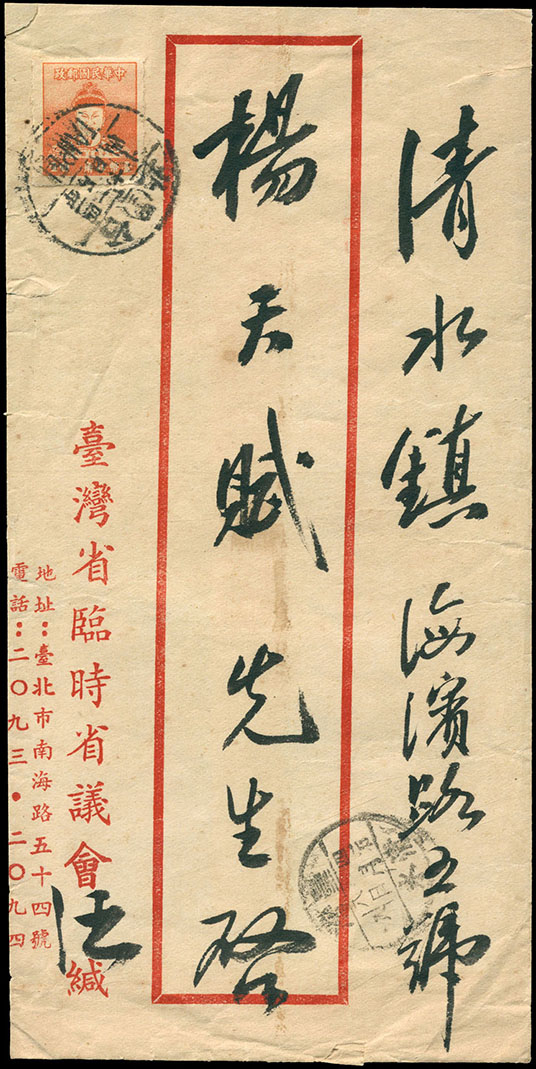 清水鎮海濱路五號
楊天賦先生啓
臺灣省臨時省議會緘
地址：臺北市南海路五十四號
電話：二〇九三・二〇九四
中華民國郵政
TAIPEI